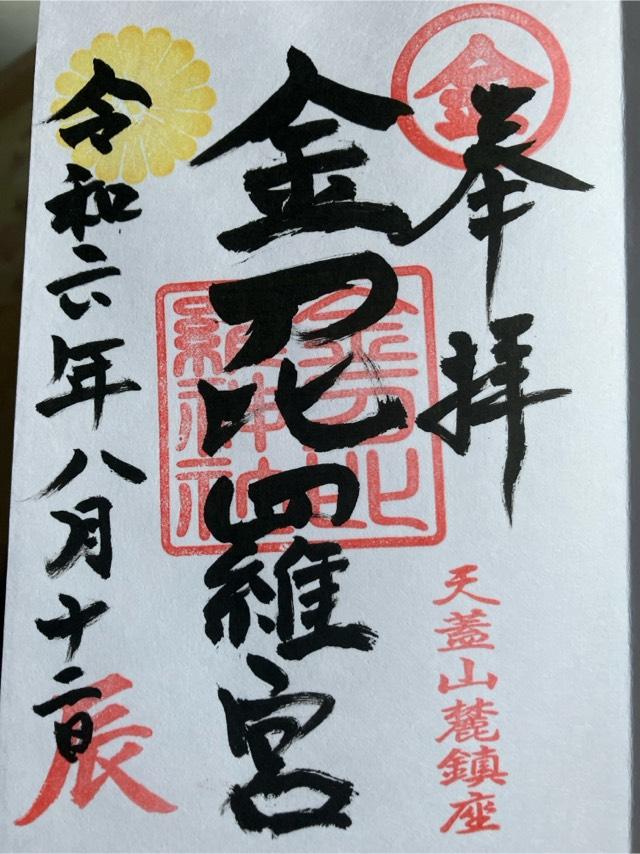 奉拝
金
天蓋山麓鎮座
金刀比羅宮
令和六年八月十二日
辰